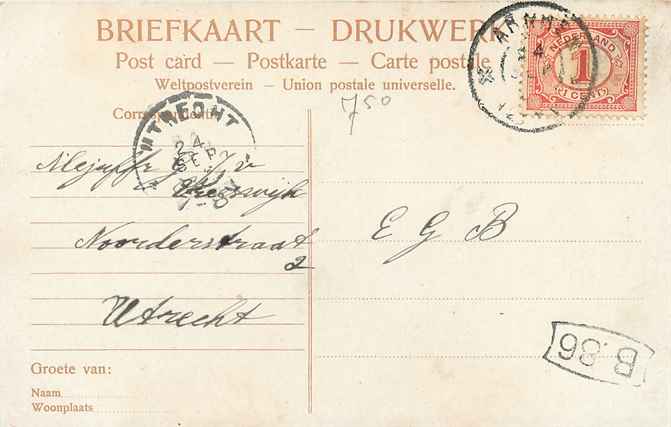 BRIEFKAART — DRUKWERK
Post card — Postkarte — Carte postale
Weltpostverein — Union postale universelle.
ARNHE
NEDERLAND
1
1 CENT
750
Correspondentie
UTRECHT
24
SEP
Mejuffr. J. v
Vreeswijk
Noorderstraat
2
Utrecht
E G B
B.86
Groete van:
Naam
Woonplaats